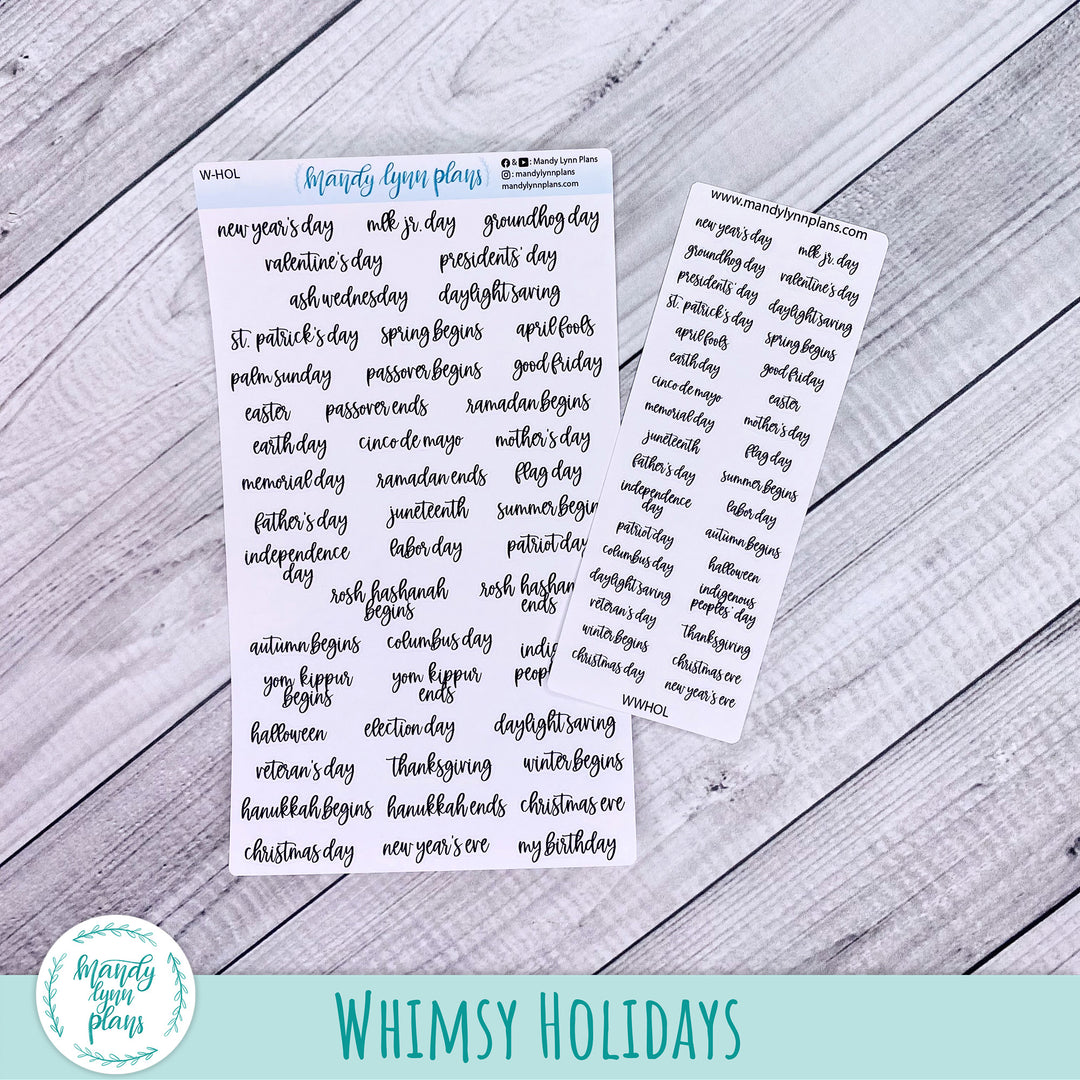 W-HOL
mandy lynn plans
& : Mandy Lynn Plans
: mandylynnplans
mandylynnplans.com
new year's day mlk jr. day groundhog day
valentine's day presidents' day
ash wednesday daylight saving
st. patrick's day spring begins april fools
palm sunday passover begins good friday
easter passover ends ramadan begins
earth day cinco de mayo mother's day
memorial day ramadan ends flag day
father's day juneteenth summer begin
independence
day
labor day patriot day
rosh hashanah
begins
rosh hashan
ends
autumn begins columbus day
indig
peop
yom kippur
begins
yom kippur
ends
halloween election day daylight saving
veteran's day thanksgiving winter begins
hanukkah begins hanukkah ends christmas eve
christmas day new year's eve my birthday
www.mandylynnplans.com
new year's day mlk jr. day
groundhog day valentine's day
presidents' day daylight saving
st. patrick's day spring begins
april fools good friday
earth day easter
cinco de mayo mother's day
memorial day flag day
juneteenth summer begins
father's day labor day
independence
day
autumn begins
patriot day halloween
columbus day
indigenous
peoples' day
daylight saving thanksgiving
veteran's day christmas eve
winter begins new year's eve
christmas day
WWHOL
mandy
lynn
plans
Whimsy Holidays